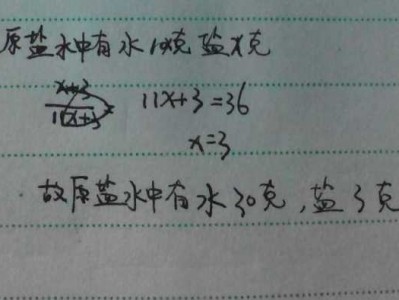 原盐水中有水10x克 盐x克
11x+3=36
x=3
故原盐水中有水30克,盐3克